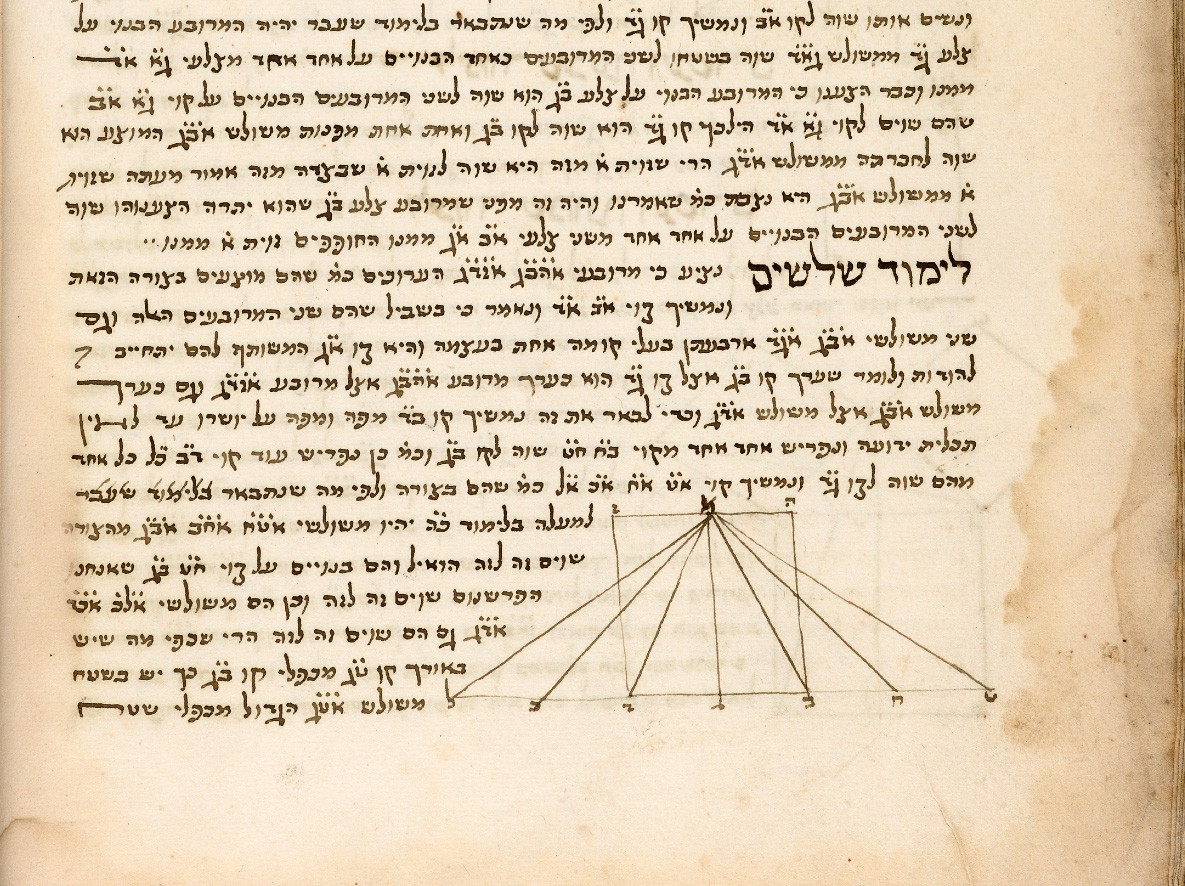 ונשים אותו שוה לקו אב ונמשיך קו גד ולפי מה שנתבאר בלימוד שעבר יהיה המרובע הבנוי על
צלע גד ממשולש גאד שוה בשטחו לשני המרובעים כאחד הבנויים על אחד אחד מצלעי גא אד
ממנו וכבר הצענו כי המרובע הבנוי על צלע בג הוא שוה לשני המרובעים הבנויים על קוי גא אב
שהם שוים לקוי גא אד הילכך קו גד הוא שוה לקו בג ואחת אחת מפנות משולש אבג המוצע הוא
שוה לחברתה ממשולש אדג הרי שזוית א מזה היא שוה לזוית א שבצדה מזה אמור מעתה שזוית
א ממשולש אבג היא נצבת כמ שאמרנו והיה זה מפני שמרובע צלע בג שהוא יתרה הצענוהו שוה
לשני המרובעים הבנויים על אחד אחד משני צלעי אב אג ממנו החופפים זוית א ממנו
לימוד שלשים נציע כי מרובעי אהבג אזדג הערוכים כמ שהם מוצעים בצורה הזאת
ונמשיך קוי אב אד ונאמר כי בשביל שהם שני המרובעים האלה וגם
שני משולשי אבג אגד ארבעתן בעלי קומה אחת בעצמה והיא קו אג המשותף להם יתחייב
להודות ולומר שערך קו בג אצל קו גד הוא כערך מרובע אהבג אצל מרובע אזדג וגם כערך
משולש אבג אצל משולש אדג וכדי לבאר את זה נמשיך קו בד מפה ומפה על יושרו עד לאין
תכלית ידועה ונפריש אחד אחד מקוי בח חט שוה לקו בג וכמ כן נפריש עוד קוי דכ כל כל אחד
מהם שוה לקו גד ונמשיך קוי אט אח אכ אל כמ שהם בצורה ולפי מה שנתבאר בלימוד שעבר
למעלה בלימוד יהיו משולשי אטח אחב אבג מהצורה
שוים זה לזה הואיל והם בנויים על קוי חט בג שאנחנו
הפרשנום שוים זה לזה וכן הם משולשי אלכ
אדג גם הם שוים זה לזה הרי שכפי מה שיש
באורך קו טג מכפלי קו בג כך יש בשטח
משולש אטג הגדול מכפלי שטח
ז א ה
ל כ ד ג ב ח ט